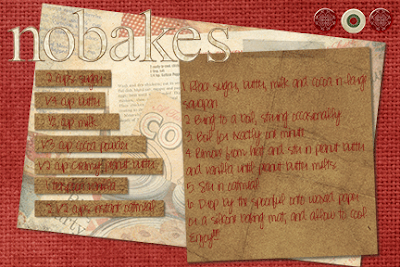 nobakes
2 cups sugar
1/3 cup butter
1/2 cup milk
1/3 cup cocoa powder
1/2 cup creamy peanut butter
1 teaspoon vanilla
2 1/2 cups instant oatmeal
1 Place sugar, butter, milk and cocoa in large
saucepan
2 Bring to a boil, stirring occasionally
3 Boil for exactly one minute
4 Remove from heat and stir in peanut butter
and vanilla until peanut butter melts
5 Stir in oatmeal
6 Drop by the spoonful onto waxed paper
or a silicone baking mat, and allow to cool
Enjoy!!!